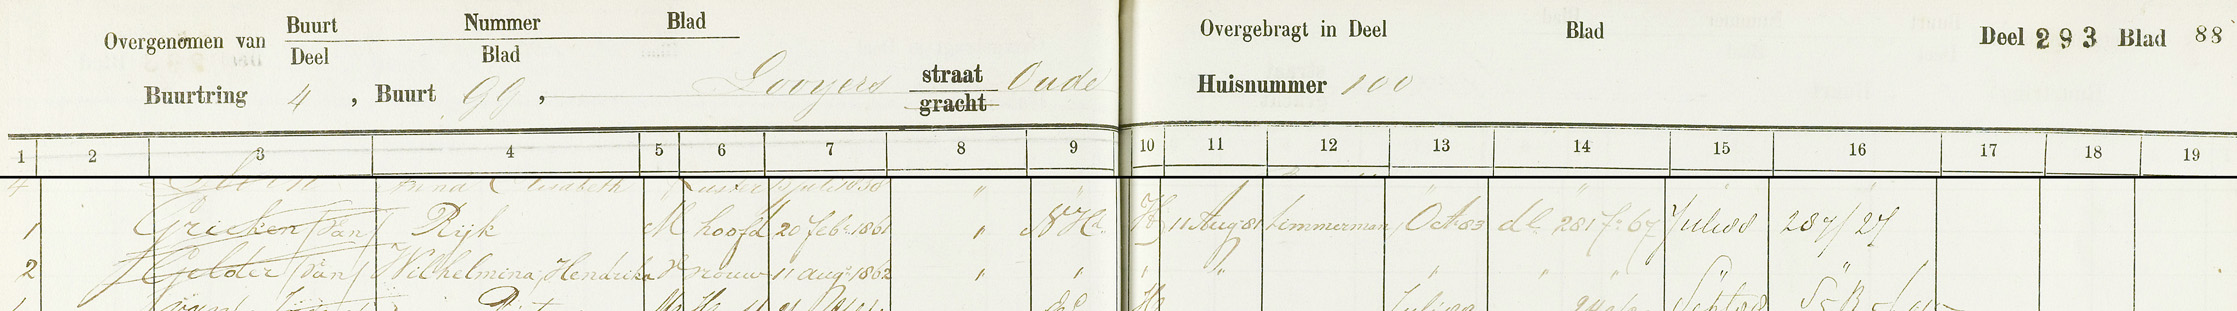 Overgenomen van Buurt Nummer Blad
Deel Blad
Buurtring 4, Buurt 99, Looyers straat Oude
gracht
Overgebragt in Deel Blad Deel 293 Blad 88
Huisnummer 100
1 2 3 4 5 6 7 8 9 10 11 12 13 14 15 16 17 18 19
4 Anna Elisabeth Juli
1 Gricken (van) Rijk M hoofd 20 feb. 1861 " N Ha. H 11 Aug 81 timmerman Oct 83 dl 281 f. 67 Juli 88 287/27
2 Gelder (van) Wilhelmina Hendrika V vrouw 11 aug. 1862 " " " " " " "